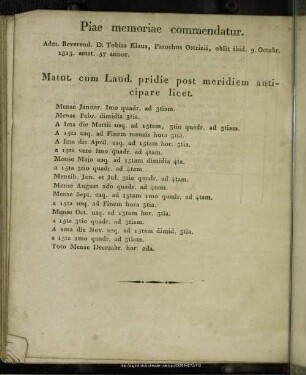 Piae memoriae commendatur.
Adm. Reverend. D. Tobias Klaus, Parochus Ostzinii, obiit ibid. 9. Octobr.
1813. aetat. 57 annor.
Matut. cum Laud. pridie post meridiem anti-
cipare licet.
Mense Januar. Imo quadr. ad 3tiam.
Mense Febr. dimidia 3tia.
A 1ma die Martii usq. ad 15tam, 3tio quadr. ad 3tiam.
A 15ta usq. ad Finem mensis hora 3tia.
A 1ma die April. usq. ad 15tam hor. 3tia.
a 15ta vero 1mo quadr. ad 4tam.
Mense Majo usq. ad 15tam dimidia 4ta.
a 15ta 3tio quadr. ad 4tam.
Mensib. Jun. et Jul. 3tio quadr. ad 4tam.
Mense August 2do quadr. ad 4tam.
Mense Sept. usq. ad 15tam 1mo quadr. ad 4tam.
a 15ta usq. ad Finem hora 3tia.
Mense Oct. usq. ad 15tam hor. 3tia.
a 15ta 3tio quadr. ad 3tiam.
A 1ma die Nov. usq. ad 15tam dimid. 3tia.
a 15ta 1mo quadr. ad 3tiam.
Toto Mense Decembr. hor. 2da.